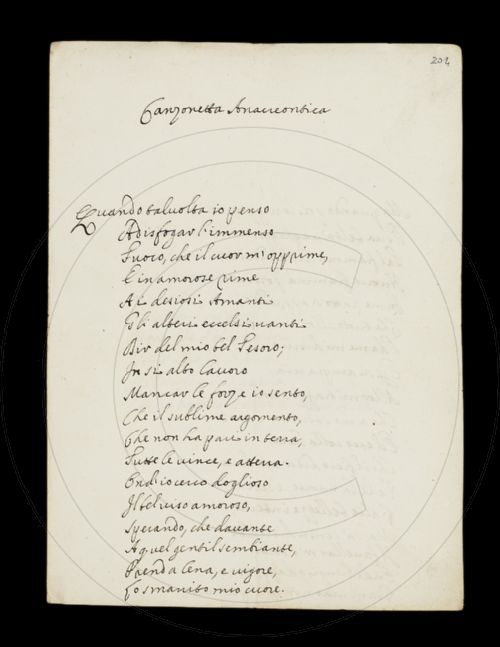 204
Canzonetta Anacreontica
Quando talvolta io penso
A disfogar l'immenso
Fuoco, che il cuor m'opprime,
E in amorose rime
Ai desiosi Amanti
Gli alteri eccelsi vanti
Dir del mio bel Tesoro;
In sì alto lavoro
Mancar le forze io sento,
Che il sublime argomento,
Che non ha pari in terra,
Tutte le vince, e atterra.
Ond'io cerco doglioso
Il bel viso amoroso,
Sperando, che davante
A quel gentil sembiante,
Prenda lena, e vigore,
Lo smarrito mio cuore.